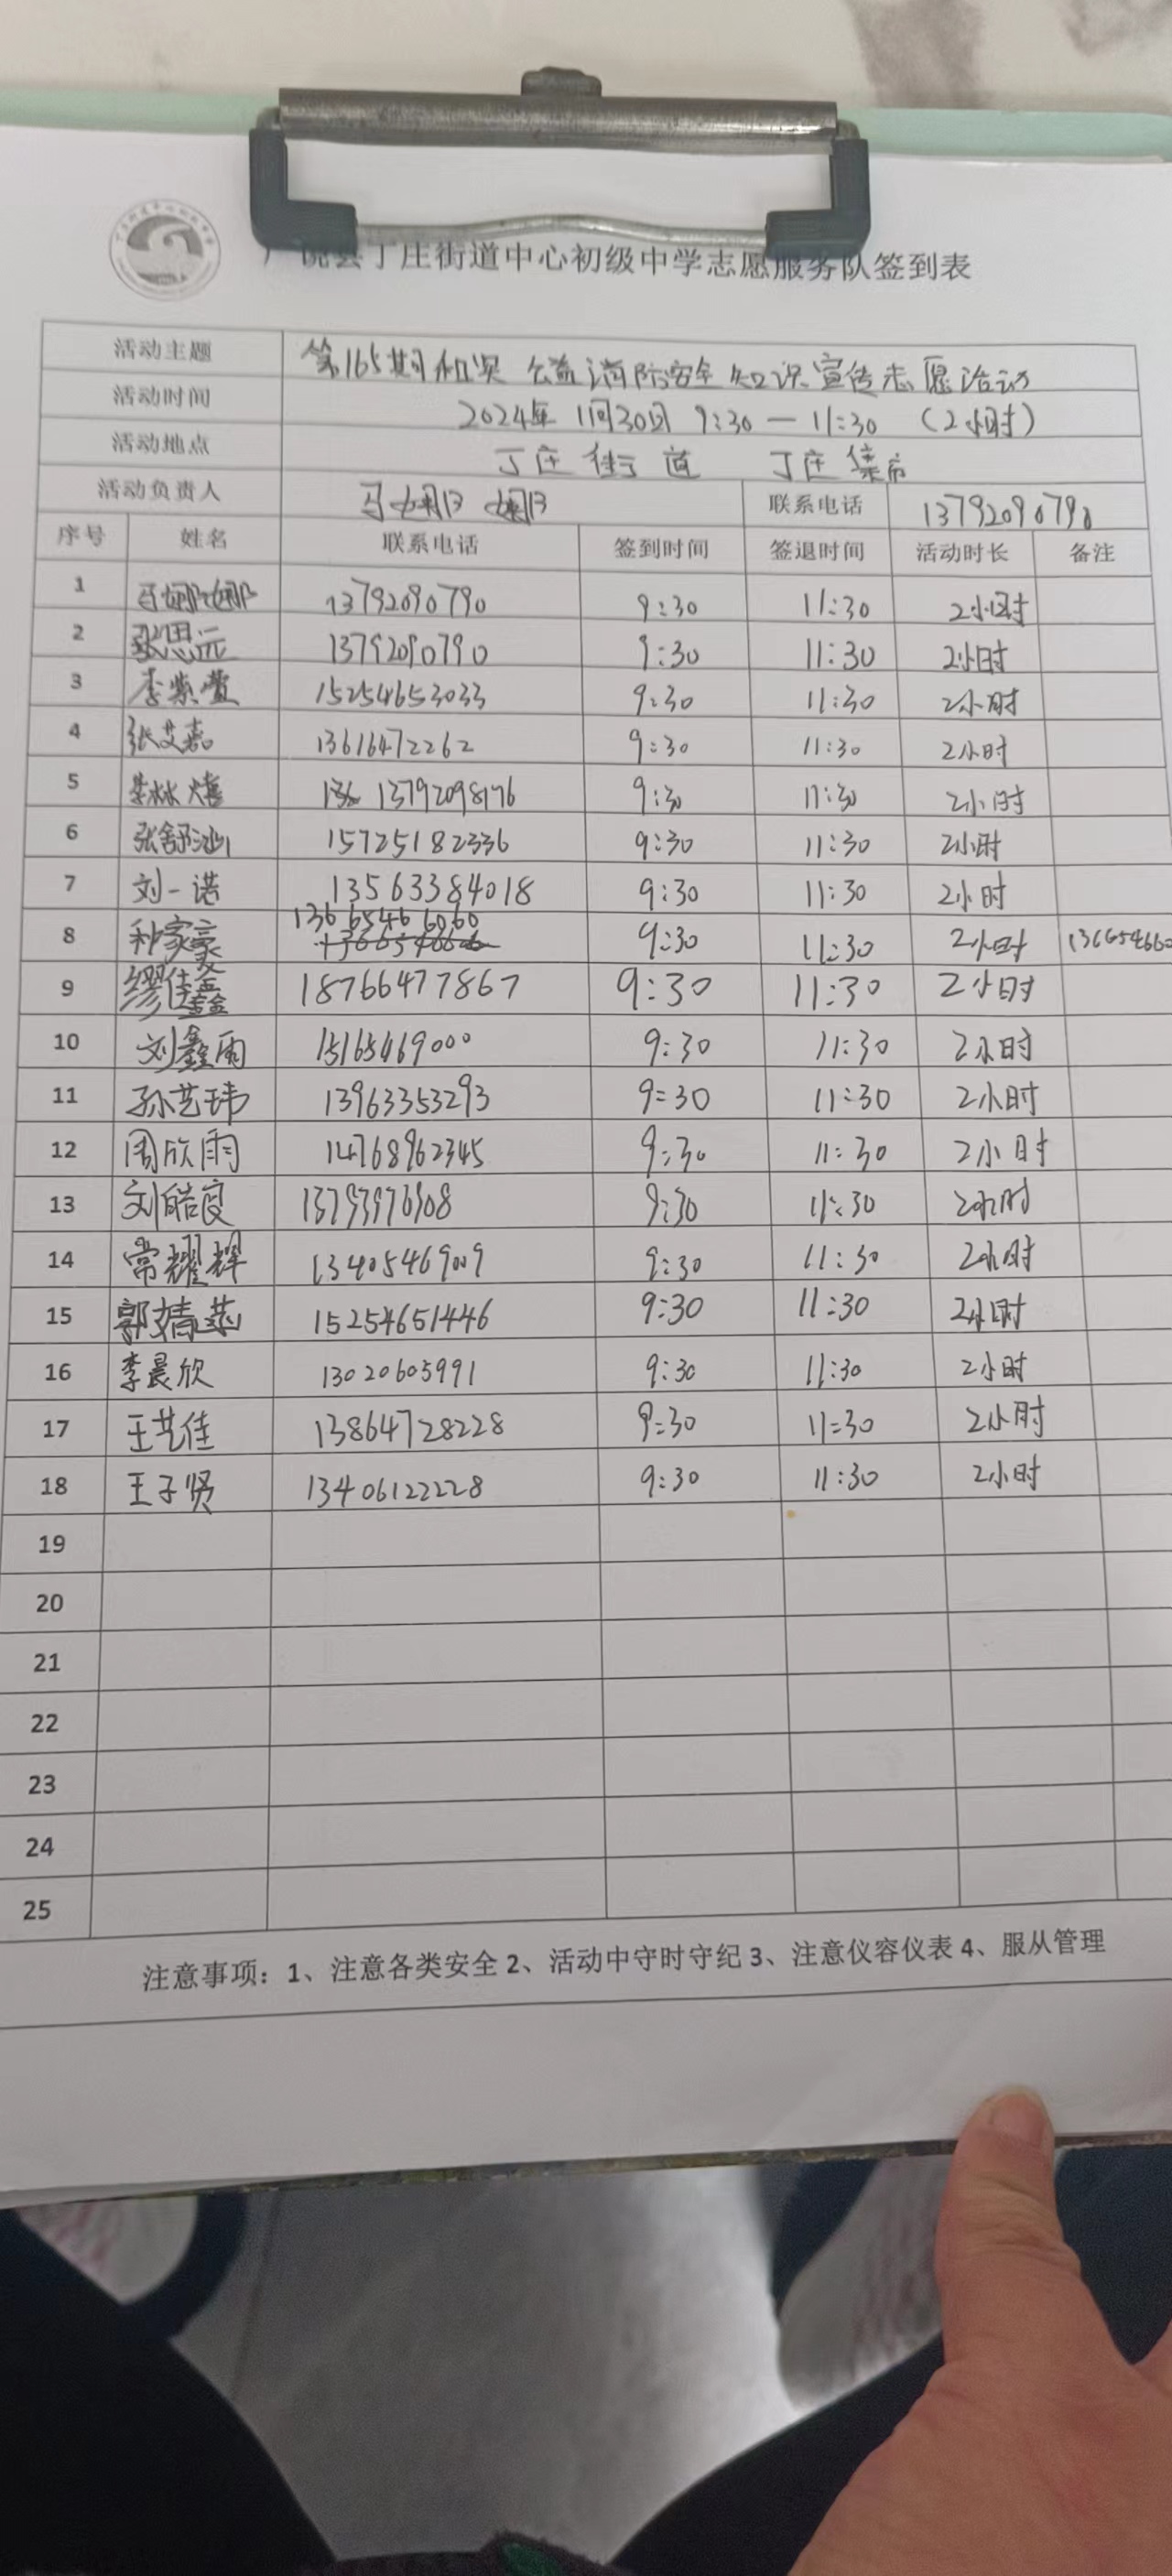 饶县丁庄街道中心初级中学志愿服务队签到表
活动主题 第165期 公益消防安全知识宣传志愿活动
活动时间 2024年 11月30日 9:30 — 11:30 (2小时)
活动地点 丁庄街道 丁庄集市
活动负责人 马娜娜 联系电话 13792090790
序号 姓名 联系电话 签到时间 签退时间 活动时长 备注
1 马娜娜 13792090790 9:30 11:30 2小时
2 张思远 13792090790 9:30 11:30 2小时
3 李紫萱 15254653033 9:30 11:30 2小时
4 张艾嘉 13616472262 9:30 11:30 2小时
5 13792098176 9:30 11:30 2小时
6 15725182336 9:30 11:30 2小时
7 刘一诺 13563384018 9:30 11:30 2小时
8 13665466060 9:30 11:30 2小时
9 缪佳鑫 18766477867 9:30 11:30 2小时
10 刘鑫雨 15165469000 9:30 11:30 2小时
11 孙艺玮 13963353293 9:30 11:30 2小时
12 周欣雨 14768962345 9:30 11:30 2小时
13 13793976908 9:30 11:30 2小时
14 常耀辉 13405469009 9:30 11:30 2小时
15 15254651446 9:30 11:30 2小时
16 李晨欣 13020605991 9:30 11:30 2小时
17 王艺佳 13864728228 9:30 11:30 2小时
18 王子贤 13406122228 9:30 11:30 2小时
19
20
21
22
23
24
25
注意事项：1、注意各类安全 2、活动中守时守纪 3、注意仪容仪表 4、服从管理